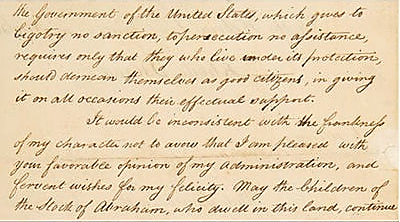 the Government of the United States, which gives to
bigotry no sanction, to persecution no assistance,
requires only that they who live under its protection,
should demean themselves as good citizens, in giving
it on all occasions their effectual support.
It would be inconsistent with the frankness
of my character not to avow that I am pleased with
your favorable opinion of my administration, and
fervent wishes for my felicity. May the Children of
the Stock of Abraham, who dwell in this land, continue